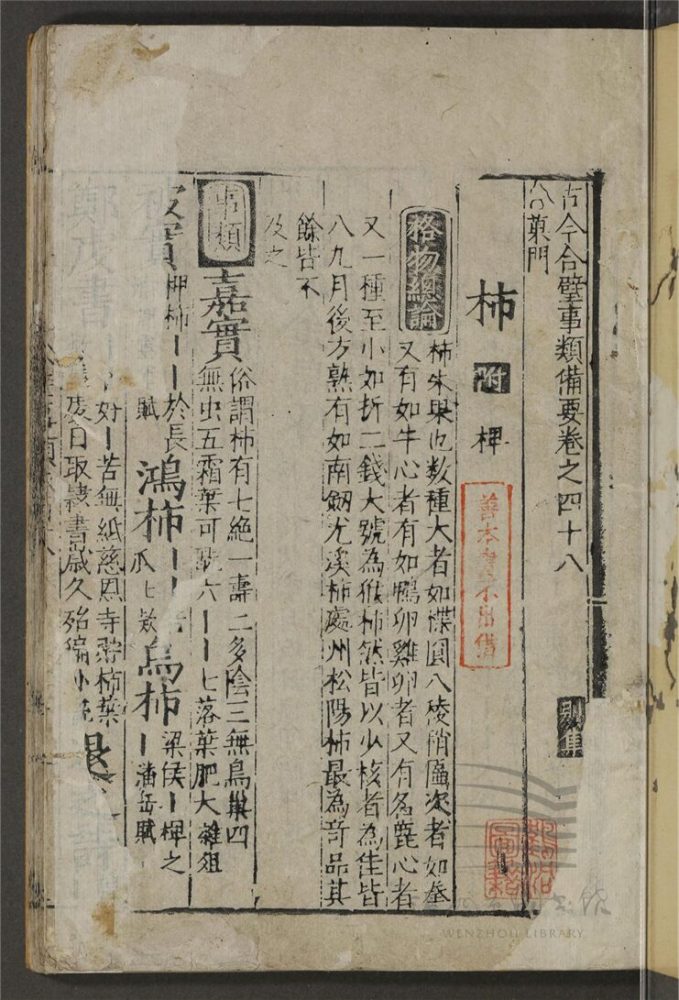 古今合璧事類備要卷之四十八
別集
菓門
柿 附 椑
善本書不出借
格物總論
柿朱果也数種大者如楪圓八稜稍匾次者如拳
又有如牛心者有如鴨卵雞卵者又有名鹿心者
又一種至小如折二錢大號為猴柿然皆以少核者為佳皆
八九月後方熟有如南劒尤溪柿處州松陽柿最為奇品其
餘皆不
及之
事類
嘉實
俗謂柿有七絕一壽二多陰三無鳥巢四
無虫五霜葉可翫六一一七落葉肥大雜俎
椑柿一一於長
賦
鴻柿
烏柿
梁侯一椑之
一潘岳賦
好一苦無紙慈恩寺貯柿葉
日取隷書歲久殆徧
WENZHOU LIBRARY